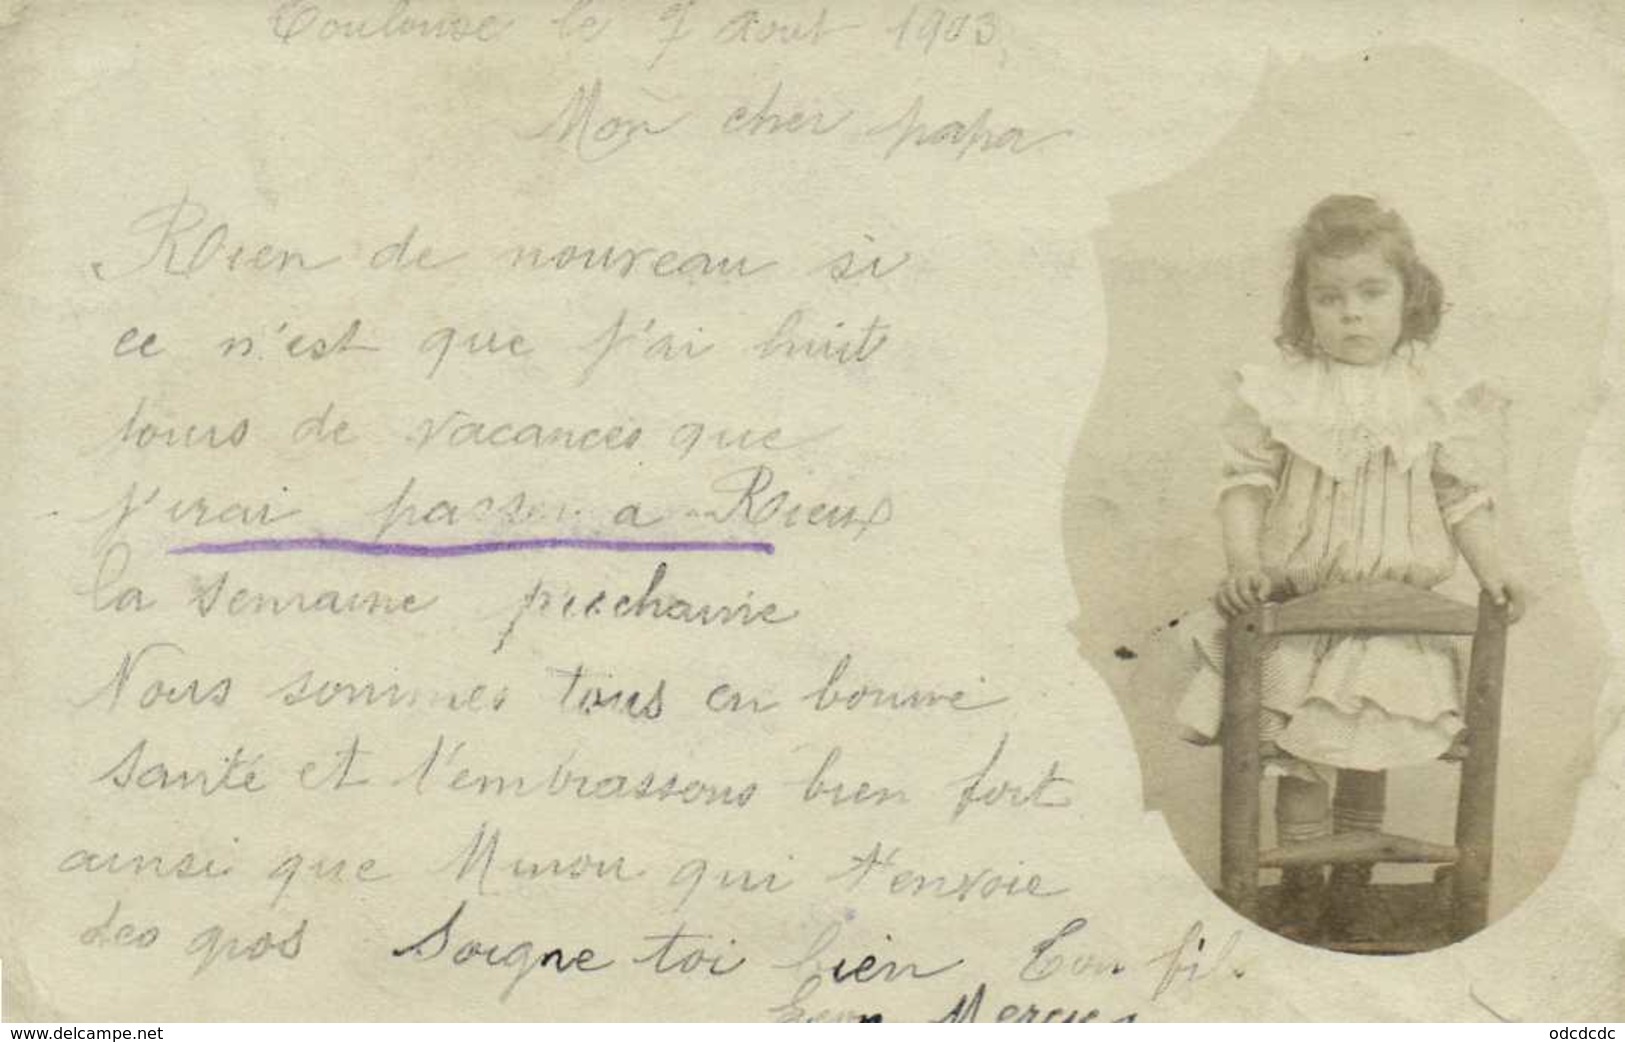 Toulouse le 9 Aout 1903
Mon cher papa
Rien de nouveau si
ce n'est que j'ai huit
jours de vacances que
j'irai passer a Rieux
la semaine prochaine
Nous sommes tous en bonne
santé et t'embrassons bien fort
ainsi que Minou qui t'envoie
des gros Soigne toi bien Ton fils
www.delcampe.net
odcdcdc